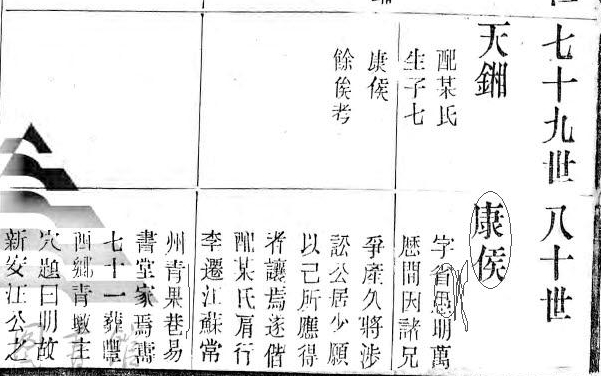 七十九世
天
配某氏
生子七
康侯
餘俟考
八十世
康侯
字省愚明萬
厯間因諸兄
爭產久將涉
訟公居少願
以己所應得
者讓焉遂偕
配某氏肩行
李遷江蘇常
州青果巷易
書堂家焉壽
七十一葬豐
西鄉青墩主
穴題曰明故
新安江公之